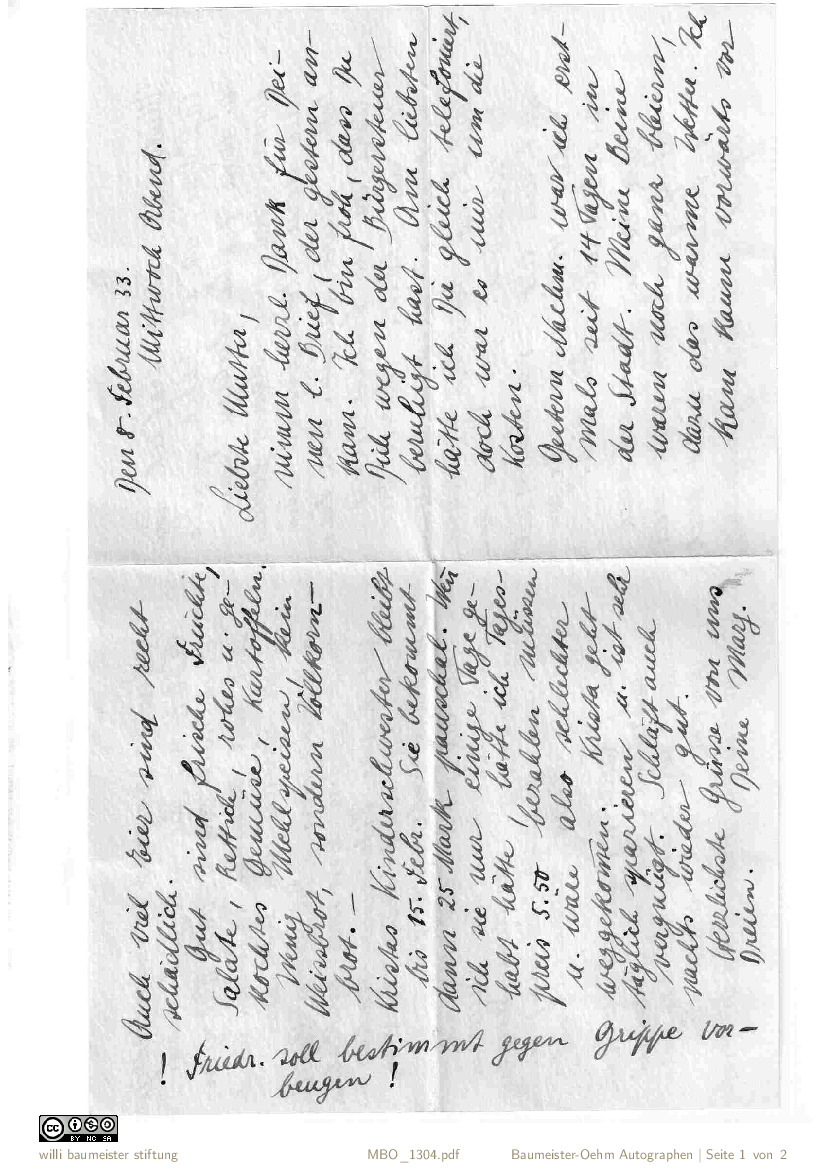 Den 8. Februar 33.
Mittwoch Abend.
Liebste Mutter,
nimm herzl. Dank für Dei-
nen l. Brief, der gestern an-
kam. Ich bin froh, dass Du
Dich wegen der Bürgersteuer
beruhigt hast. Am liebsten
hätte ich Dir gleich telefoniert,
doch war es mir um die
Kosten.
Gestern Nachm. war ich erst-
mals seit 14 Tagen in
der Stadt. Meine Beine
waren noch ganz bleiern,
dazu das warme Wetter. Ich
kam kaum vorwärts vor
Auch viel Eier sind recht
schädlich.
Gut sind frische Früchte,
Salate, Rettich, rohes u. ge-
kochtes Gemüse, Kartoffeln.
Wenig Mehlspeisen, kein
Weissbrot, sondern Vollkorn-
brot. –
Kristas Kinderschwester bleibt
bis 15. Febr. Sie bekommt
dann 25 Mark pauschal. Wenn
ich sie nur einige Tage ge-
habt hätte, hätte ich Tages-
preis 5.50 bezahlen müssen
u. wäre also schlechter
weggekommen. Krista geht
täglich spazieren u. ist sehr
vergnügt. Schläft auch
nachts wieder gut.
Herzlichste Grüsse von uns
Dreien. Deine Marg.
! Friedr. soll bestimmt gegen Grippe vor-
beugen !
CC BY NC SA
willi baumeister stiftung
MBO_1304.pdf
Baumeister-Oehm Autographen | Seite 1 von 2